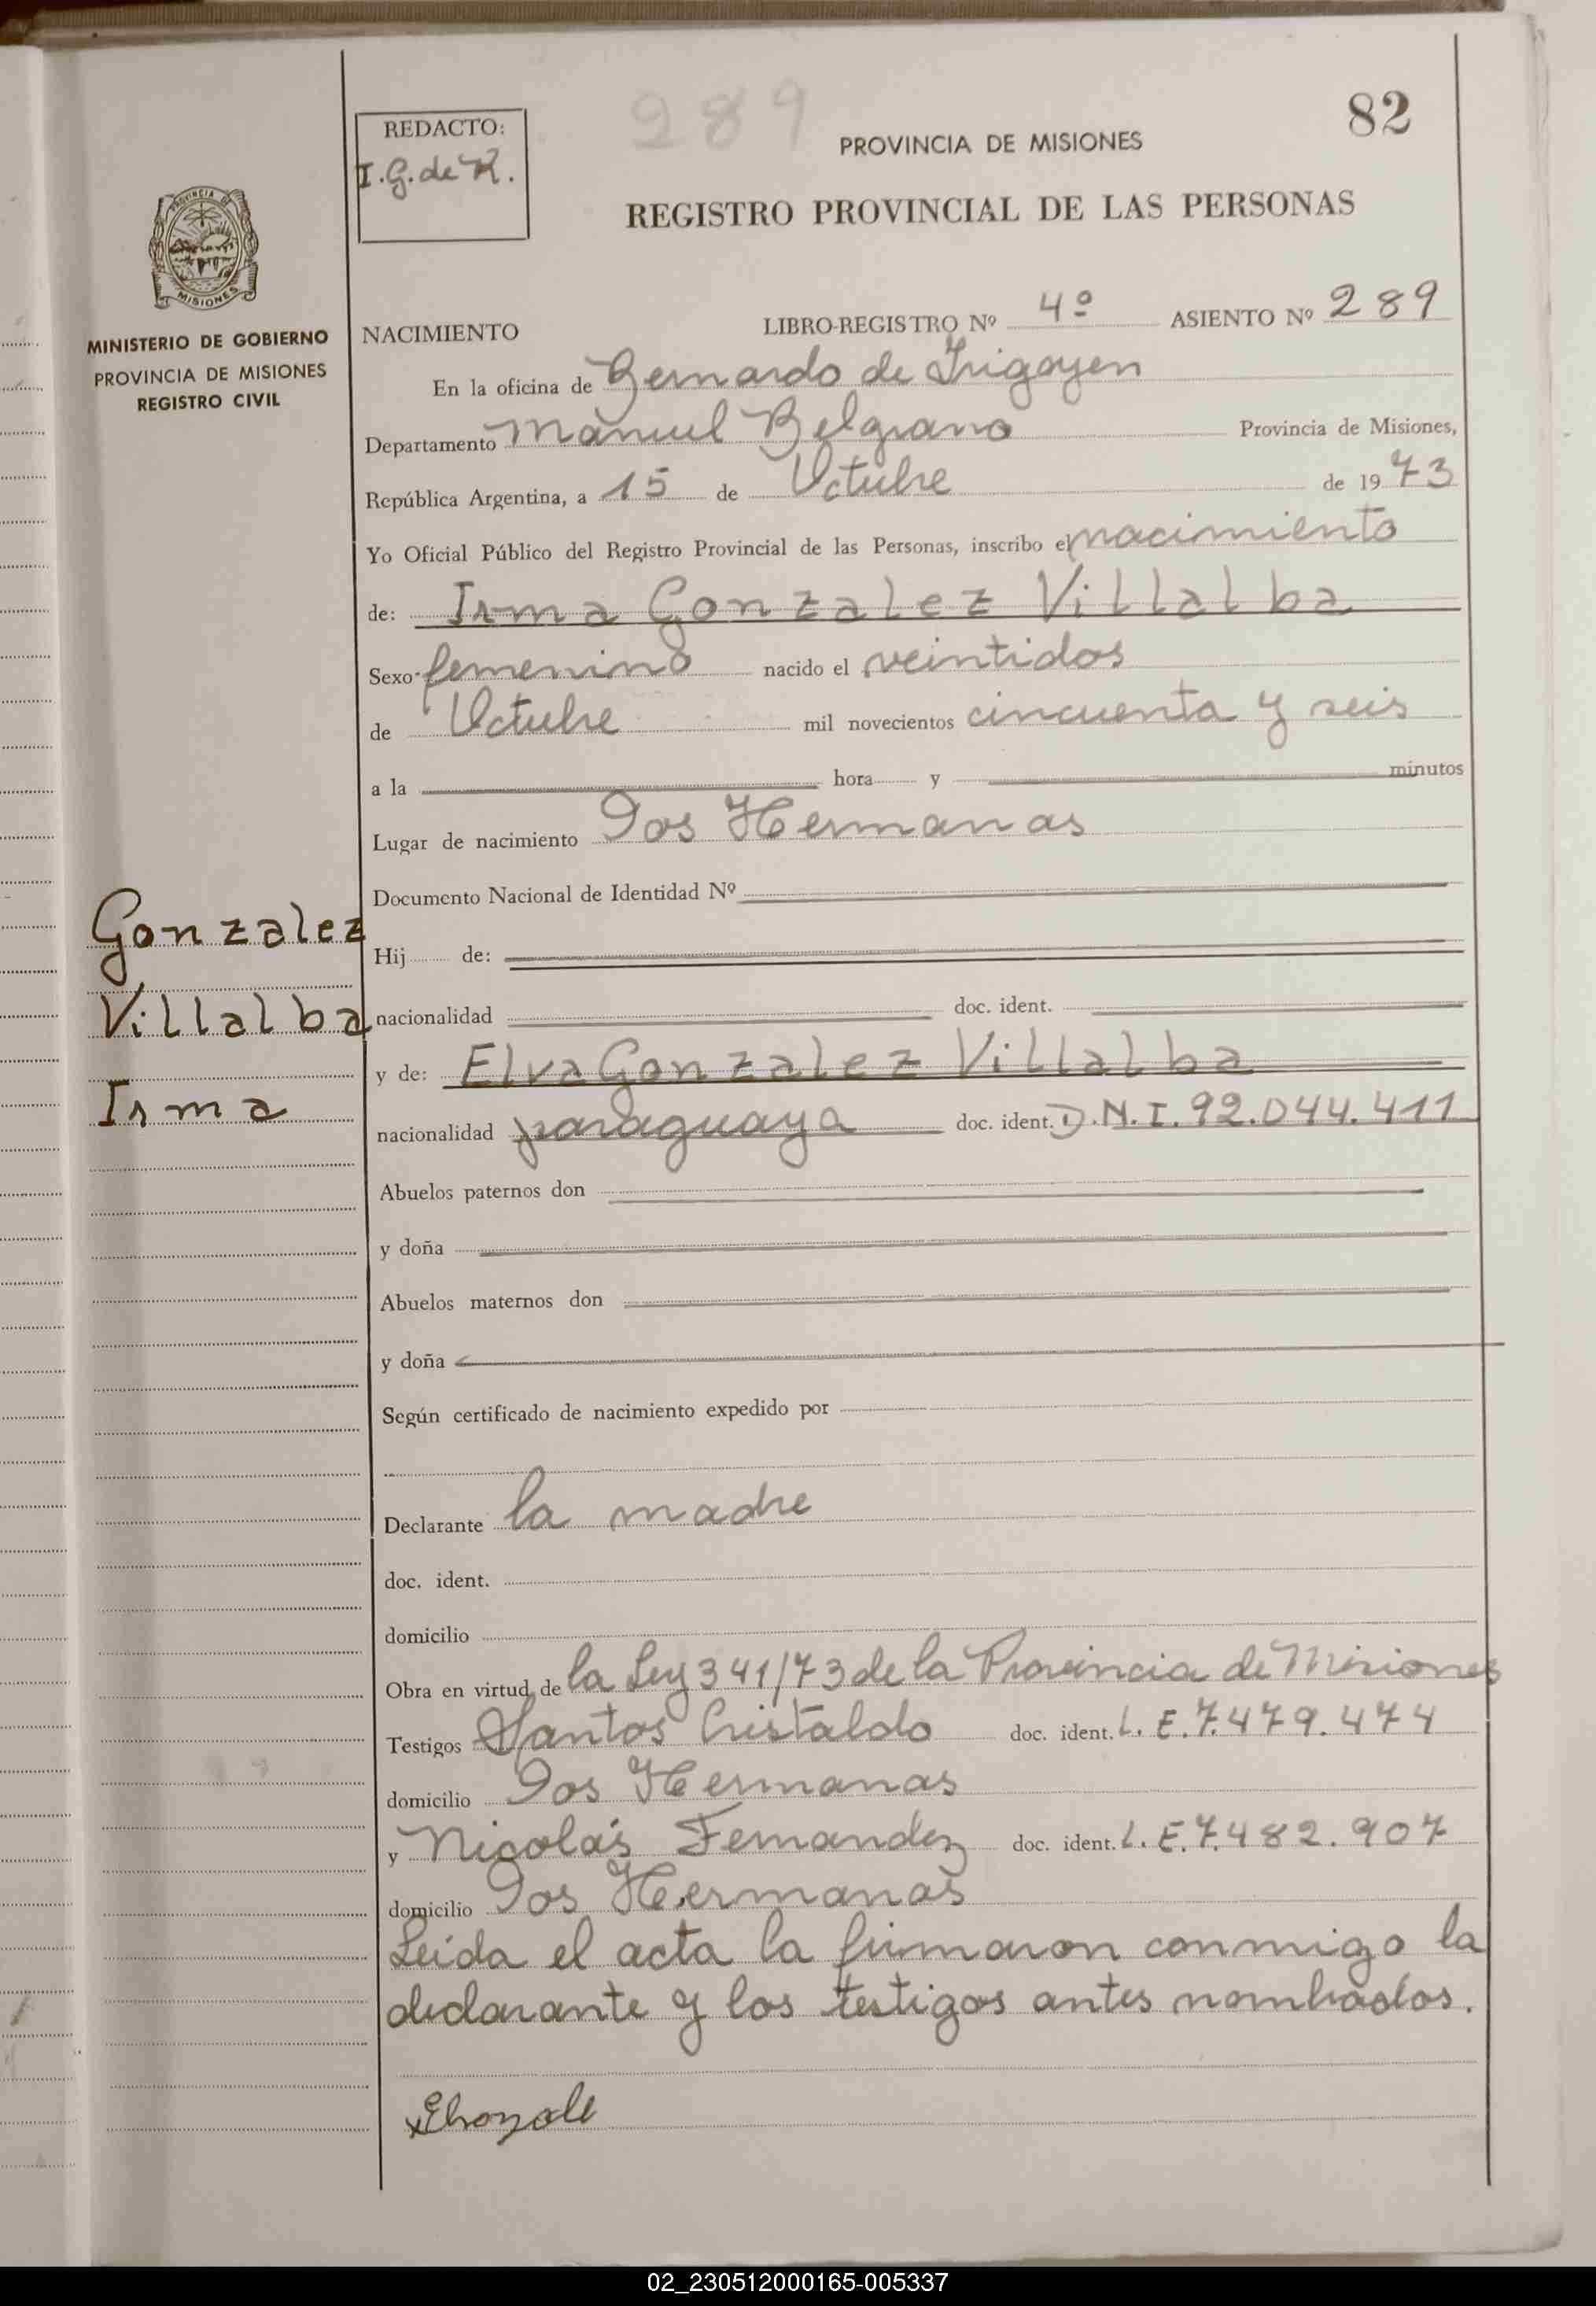 289
82
REDACTO:
I.G. de K.
PROVINCIA DE MISIONES
REGISTRO PROVINCIAL DE LAS PERSONAS
PROVINCIA DE
MISIONES
MINISTERIO DE GOBIERNO
PROVINCIA DE MISIONES
REGISTRO CIVIL
NACIMIENTO LIBRO-REGISTRO Nº 4º ASIENTO Nº 289
En la oficina de Bernardo de Irigoyen
Departamento Manuel Belgrano Provincia de Misiones,
República Argentina, a 15 de Octubre de 1973
Yo Oficial Público del Registro Provincial de las Personas, inscribo el nacimiento
de: Irma Gonzalez Villalba
Sexo femenino nacido el veintidos
de Octubre mil novecientos cincuenta y seis
a la hora y minutos
Lugar de nacimiento Dos Hermanas
Documento Nacional de Identidad Nº
Gonzalez
Villalba
Irma
Hij de:
nacionalidad doc. ident.
y de: Elva Gonzalez Villalba
nacionalidad paraguaya doc. ident. D.N.I. 92.044.411
Abuelos paternos don
y doña
Abuelos maternos don
y doña
Según certificado de nacimiento expedido por
Declarante la madre
doc. ident.
domicilio
Obra en virtud de la Ley 341/73 de la Provincia de Misiones
Testigos Santos Cristaldo doc. ident. L.E. 7.479.474
domicilio Dos Hermanas
y Nicolás Fernandez doc. ident. L.E. 7.482.907
domicilio Dos Hermanas
Leida el acta la firmaron conmigo la
declarante y los testigos antes nombrados.
02_230512000165-005337